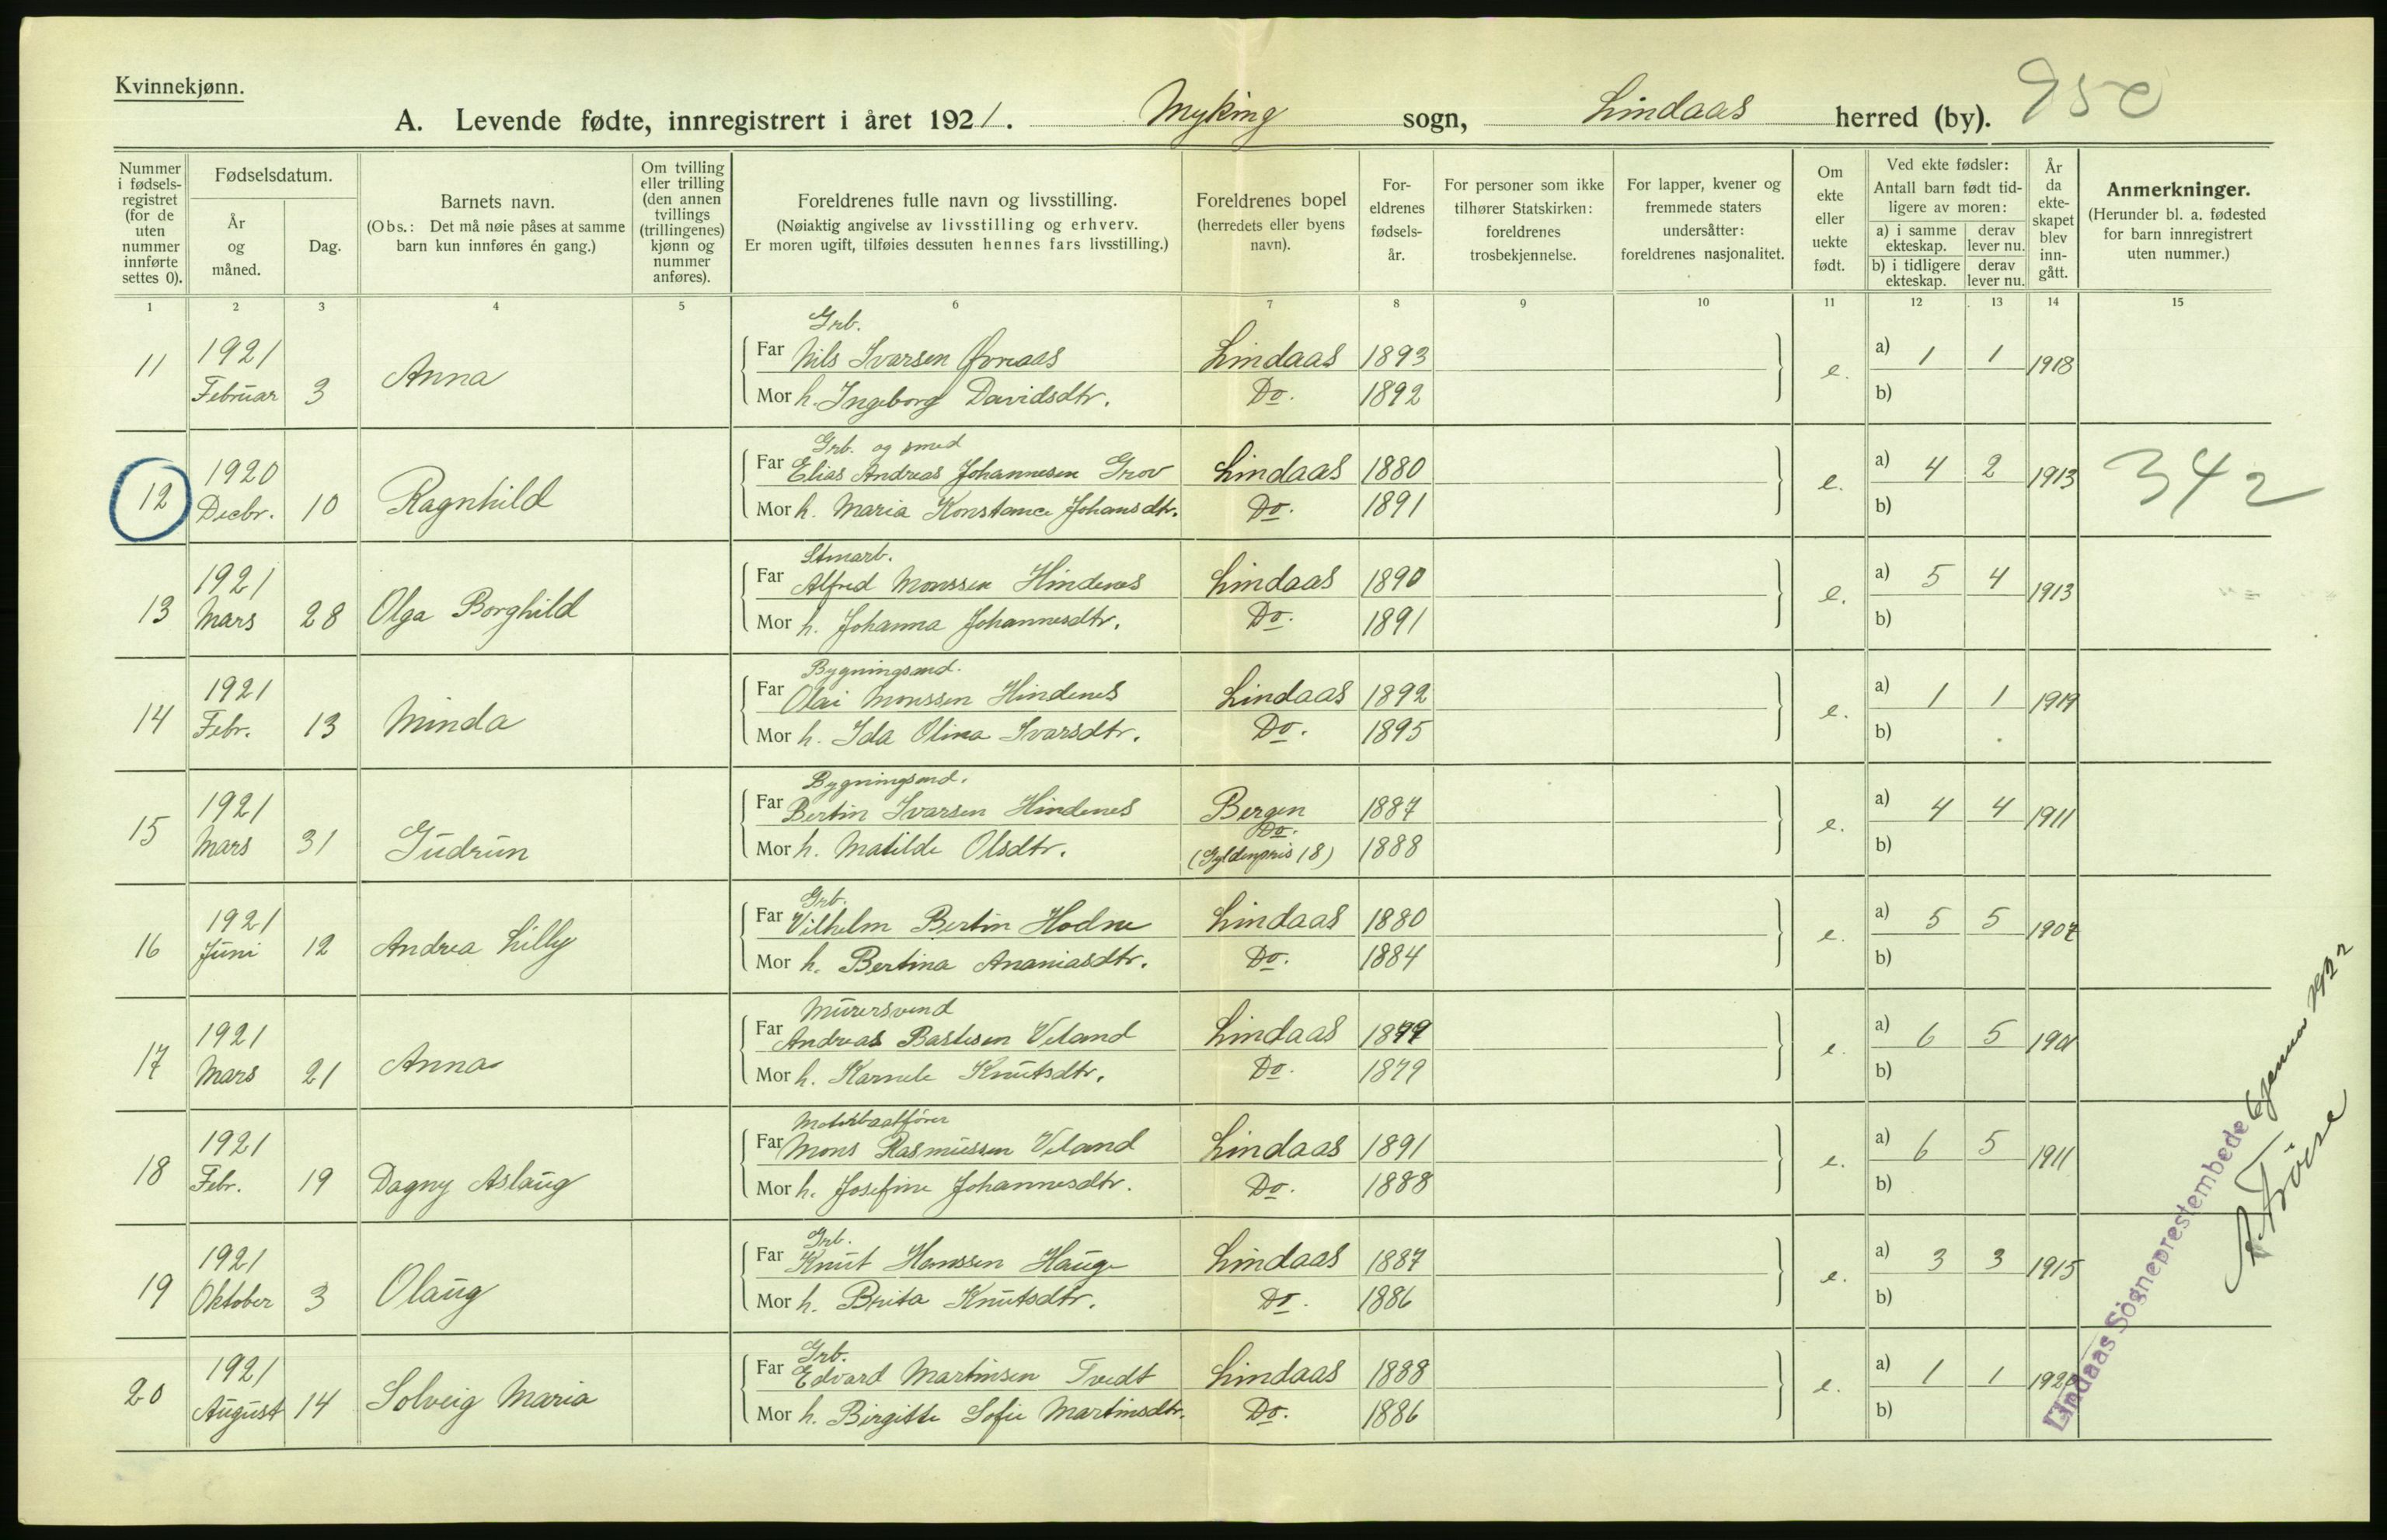 Kvinnekjønn.
A. Levende fødte, innregistrert i året 1921. Myking sogn, Lindaas herred (by). 950
Nummer i fødsels-registret (for de uten nummer innførte settes 0).
Fødselsdatum.
År og måned.
Dag.
Barnets navn.
(Obs.: Det må nøie påses at samme barn kun innføres én gang.)
Om tvilling eller trilling (den annen tvillings (trillingenes) kjønn og nummer anføres).
Foreldrenes fulle navn og livsstilling.
(Nøiaktig angivelse av livsstilling og erhverv.
Er moren ugift, tilføies dessuten hennes fars livsstilling.)
Foreldrenes bopel (herredets eller byens navn).
For-eldrenes fødsels-år.
For personer som ikke tilhører Statskirken: foreldrenes trosbekjennelse.
For lapper, kvener og fremmede staters undersåtter: foreldrenes nasjonalitet.
Om ekte eller uekte født.
Ved ekte fødsler:
Antall barn født tid-ligere av moren:
a) i samme ekteskap. derav lever nu.
b) i tidligere ekteskap. derav lever nu.
År da ekte-skapet blev inn-gått.
Anmerkninger.
(Herunder bl. a. fødested for barn innregistrert uten nummer.)
1 2 3 4 5 6 7 8 9 10 11 12 13 14 15
Grb.
11 1921 Februar 3 Anna Far Nils Ivarsen Lindaas 1893 e. a) 1 1 1918
Mor h. Ingeborg Davidsdtr. Do. 1892 b)
Grb. og smed
12 1920 Decbr. 10 Ragnhild Far Elias Andreas Johannesen Grov Lindaas 1880 e. a) 4 2 1913 342
Mor h. Maria Konstance Johansdtr. Do. 1891 b)
Stmarb.
13 1921 Mars 28 Olga Borghild Far Alfred Monssen Hindenes Lindaas 1890 e. a) 5 4 1913
Mor h. Johanna Johannesdtr. Do. 1891 b)
Bygningssnd.
14 1921 Febr. 13 Minda Far Olai Monssen Hindenes Lindaas 1892 e. a) 1 1 1919
Mor h. Ida Olina Ivarsdtr. Do. 1895 b)
Bygningssnd.
15 1921 Mars 31 Gudrun Far Bertin Ivarsen Hindenes Bergen 1887 e. a) 4 4 1911
Mor h. Matilde Olsdtr. Do. (Gyldenpris 18) 1888 b)
Grb.
16 1921 Juni 12 Andrea Lilly Far Vilhelm Bertin Hodne Lindaas 1880 e. a) 5 5 1907
Mor h. Bertina Ananiasdtr. Do. 1884 b)
Murersvend
17 1921 Mars 21 Anna Far Andreas Bastesen Veland Lindaas e. a) 6 5 1901
Mor h. Karnele Knutsdtr. Do. 1879 b)
Motorbaatfører
18 1921 Febr. 19 Dagny Aslaug Far Mons Rasmussen Veland Lindaas 1891 e. a) 6 5 1911
Mor h. Josefine Johannesdtr. Do. 1888 b)
Grb.
19 1921 Oktober 3 Olaug Far Knut Hanssen Hauge Lindaas 1887 e. a) 3 3 1915
Mor h. Brita Knutsdtr. Do. 1886 b)
Grb.
20 1921 August 14 Solveig Maria Far Edvard Martinsen Tvedt Lindaas 1888 e. a) 1 1 1920
Mor h. Birgitte Sofie Martinsdtr. Do. 1886 b)
Lindaas Sogneprestembede 6 januar 1922